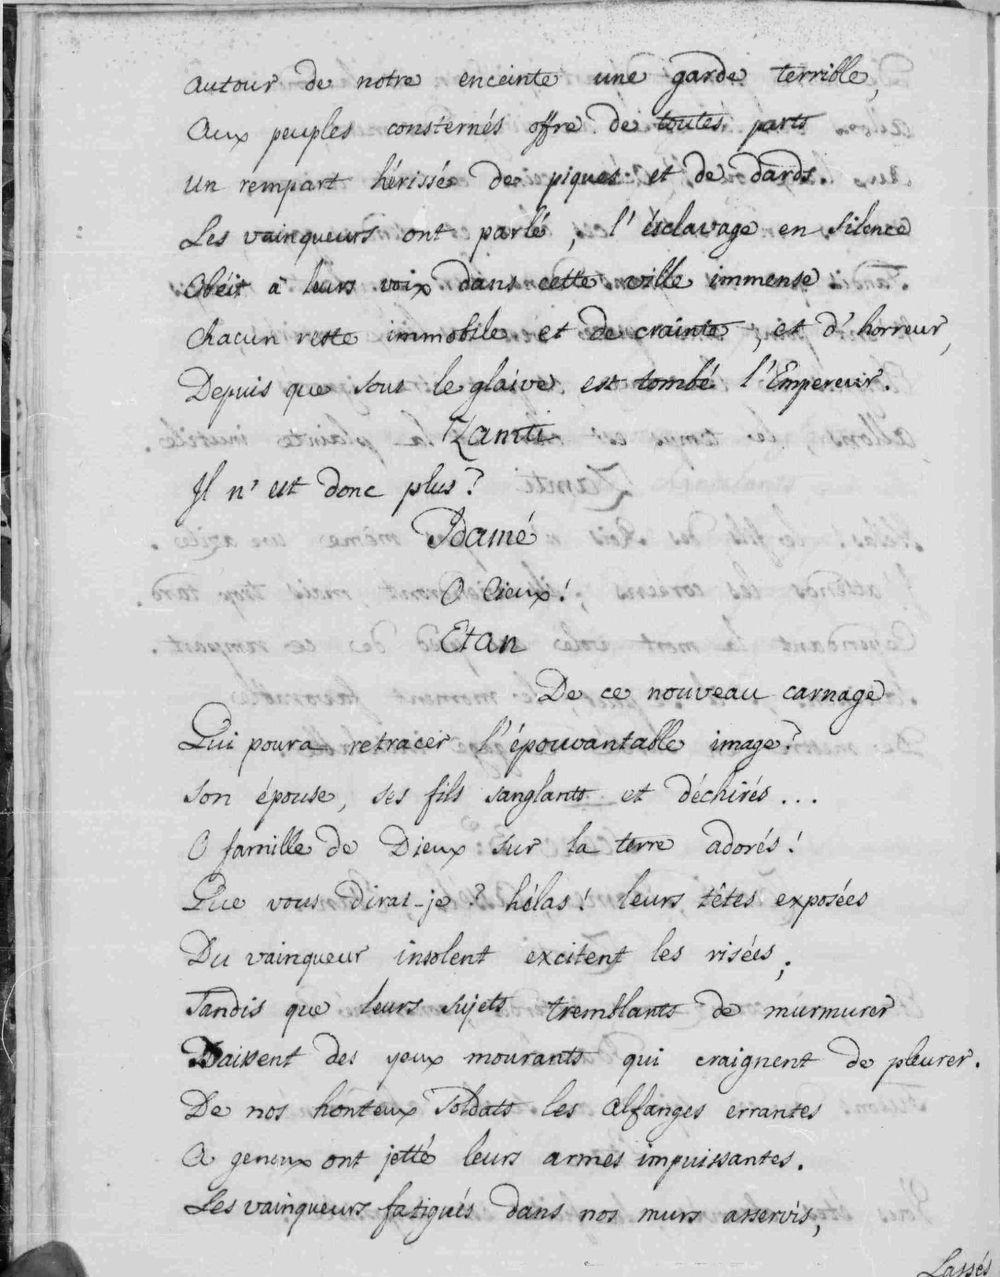 autour de notre enceinte une garde terrible,
Aux peuples consternés offre de toutes parts
un rempart hérissé de piques et de dards.
Les vainqueurs ont parlé, l'ésclavage en silence
Obéit à leurs voix dans cette ville immense
Chacun reste immobile et de crainte, et d'horreur,
Depuis que sous le glaive est tombé l'Empereur.
Zamti
Il n'est donc plus?
Idamé
O Cieux!
Etan
De ce nouveau carnage
Qui poura retracer l'épouvantable image?
son épouse, ses fils sanglants et déchirés...
O famille de Dieux sur la terre adorés!
Que vous dirai-je? hélas! leurs têtes exposées
Du vainqueur insolent excitent les risées;
Tandis que leurs sujets tremblants de murmurer
Baissent des yeux mourants qui craignent de pleurer.
De nos honteux soldats les alfanges errantes
A genoux ont jetté leurs armes impuissantes.
Les vainqueurs fatigués dans nos murs asservis,
Lassés